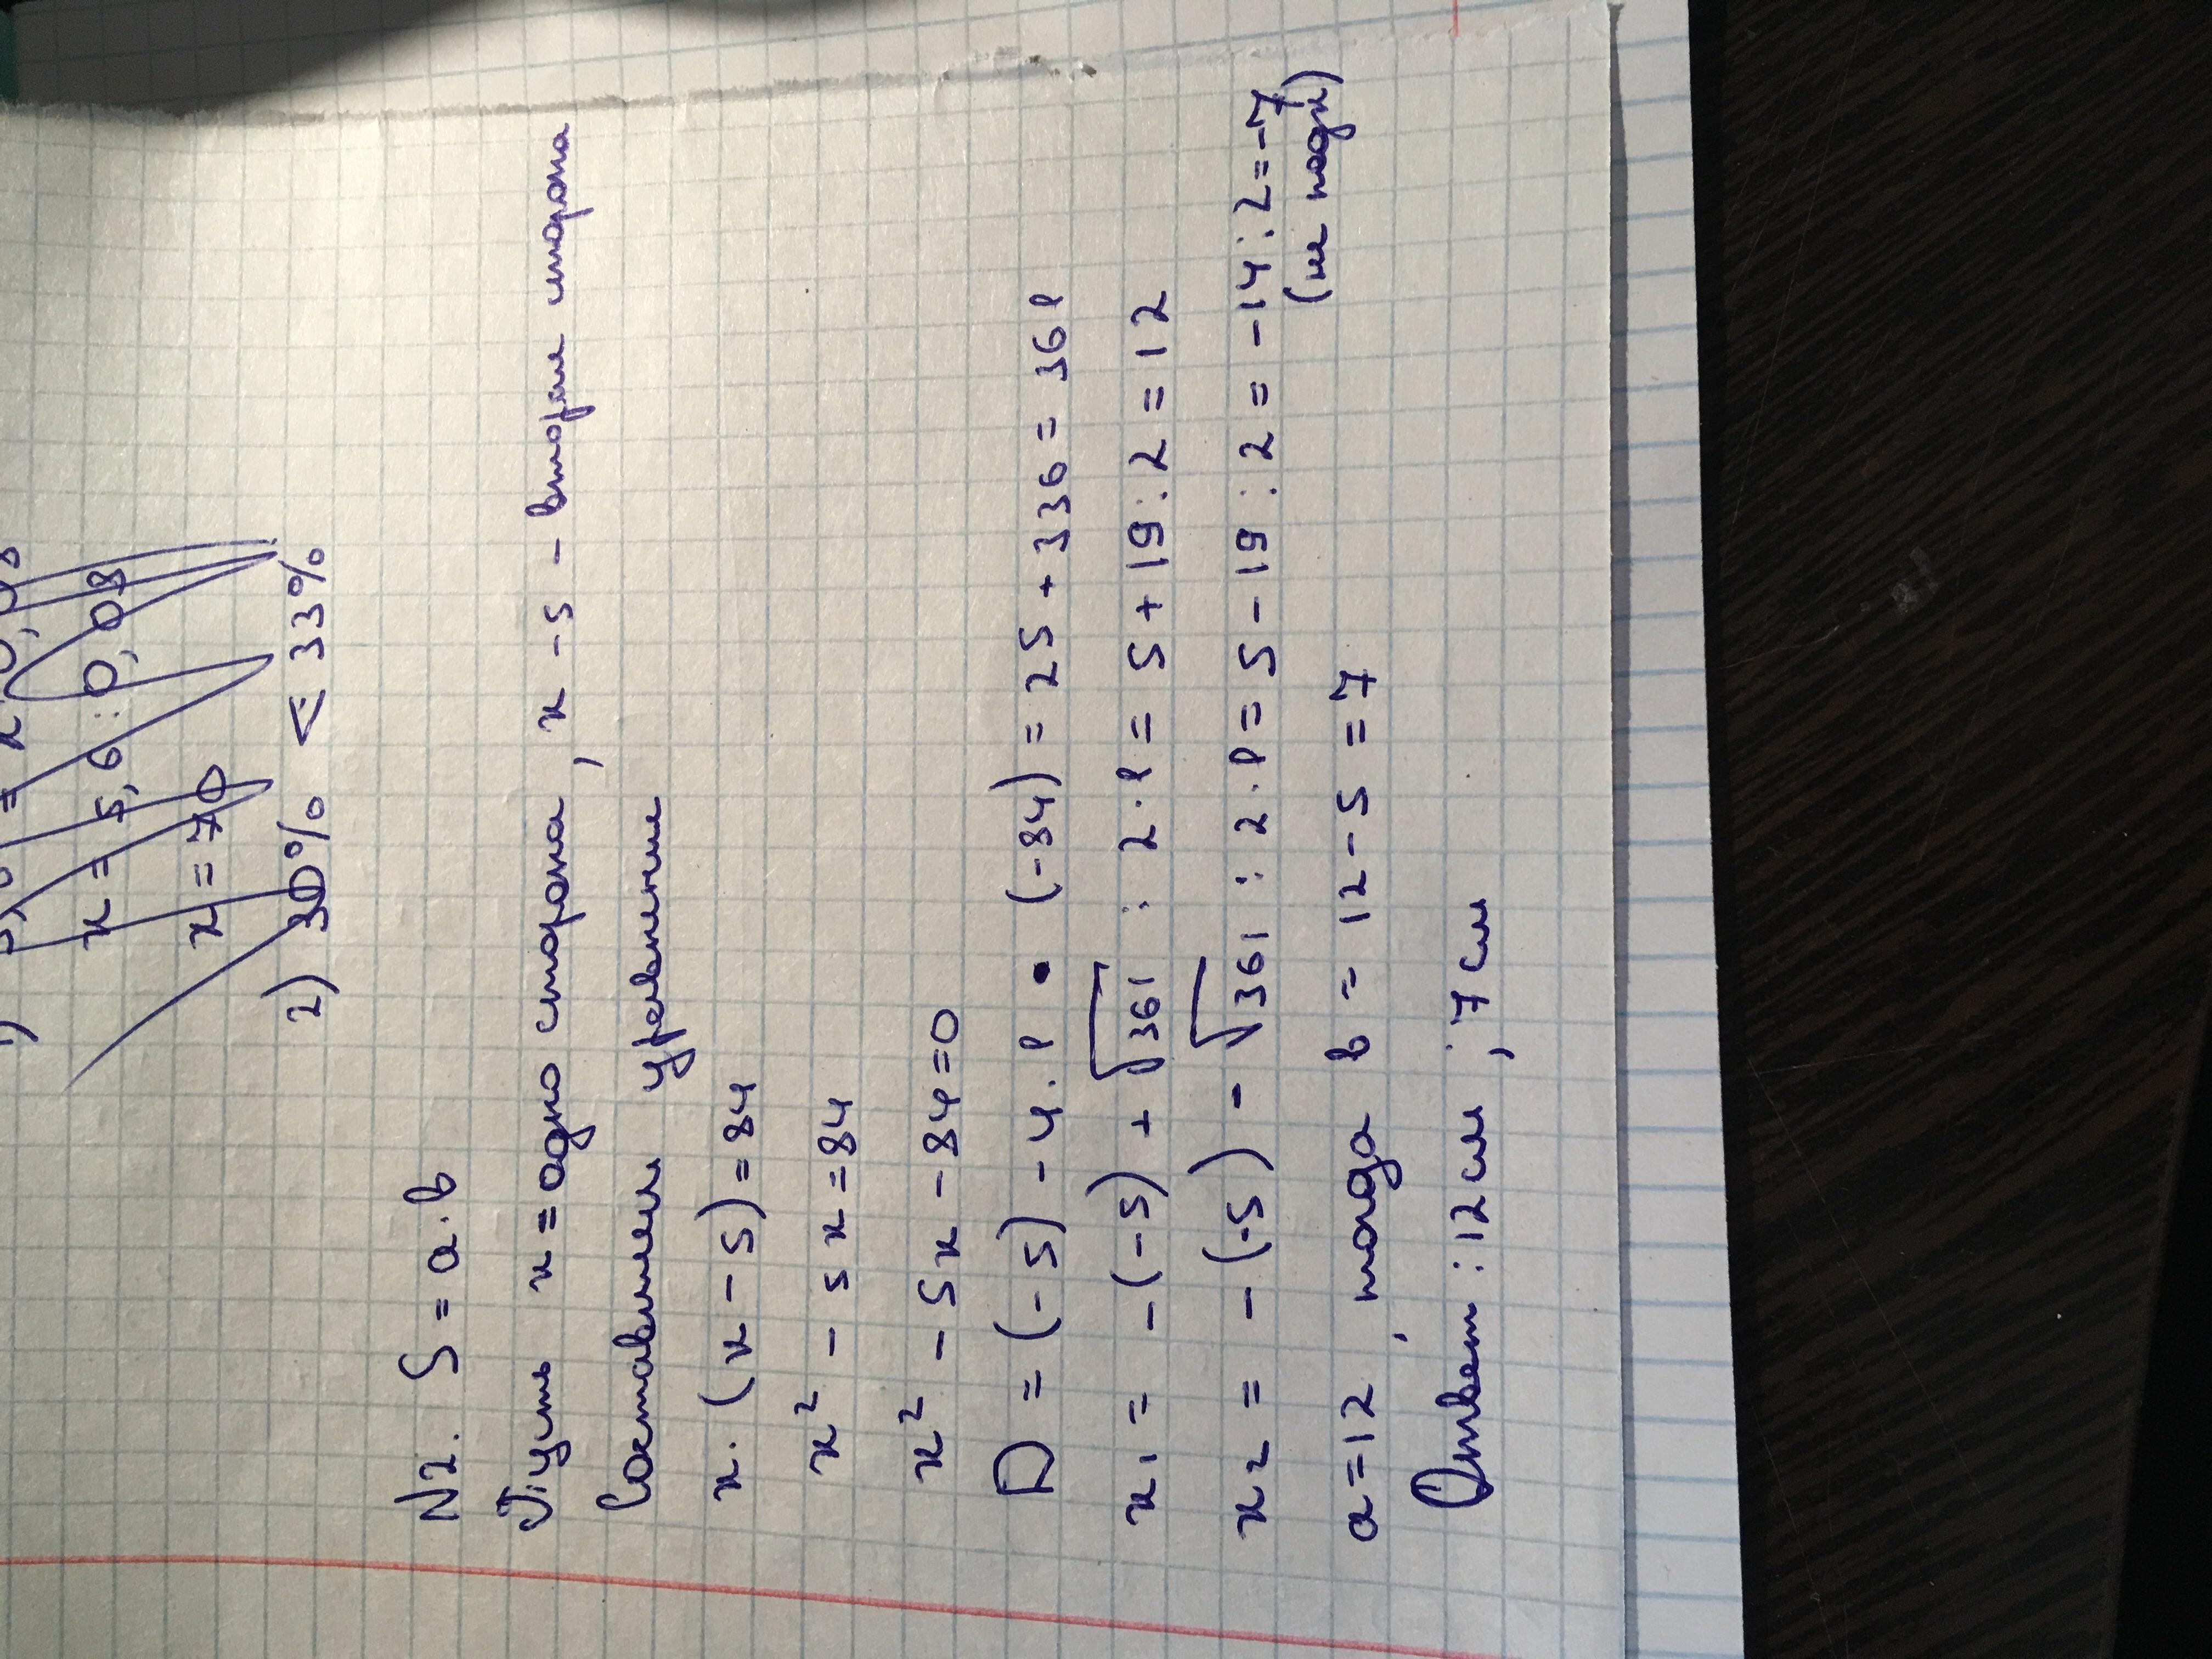 x = 5,6 : 0,08
x = 70
2) 30% < 33%
N2. S = a · b
Пусть x = одно сторона, x - 5 - вторая сторона
Составим уравнение
x · (x - 5) = 84
x² - 5x = 84
x² - 5x - 84 = 0
D = (-5) - 4 · 1 · (-84) = 25 + 336 = 361
x1 = -(-5) + √361 : 2 · 1 = 5 + 19 : 2 = 12
x2 = -(-5) - √361 : 2 · 1 = 5 - 19 : 2 = -14 : 2 = -7
(не подх)
a = 12, тогда b = 12 - 5 = 7
Ответ: 12 см, 7 см